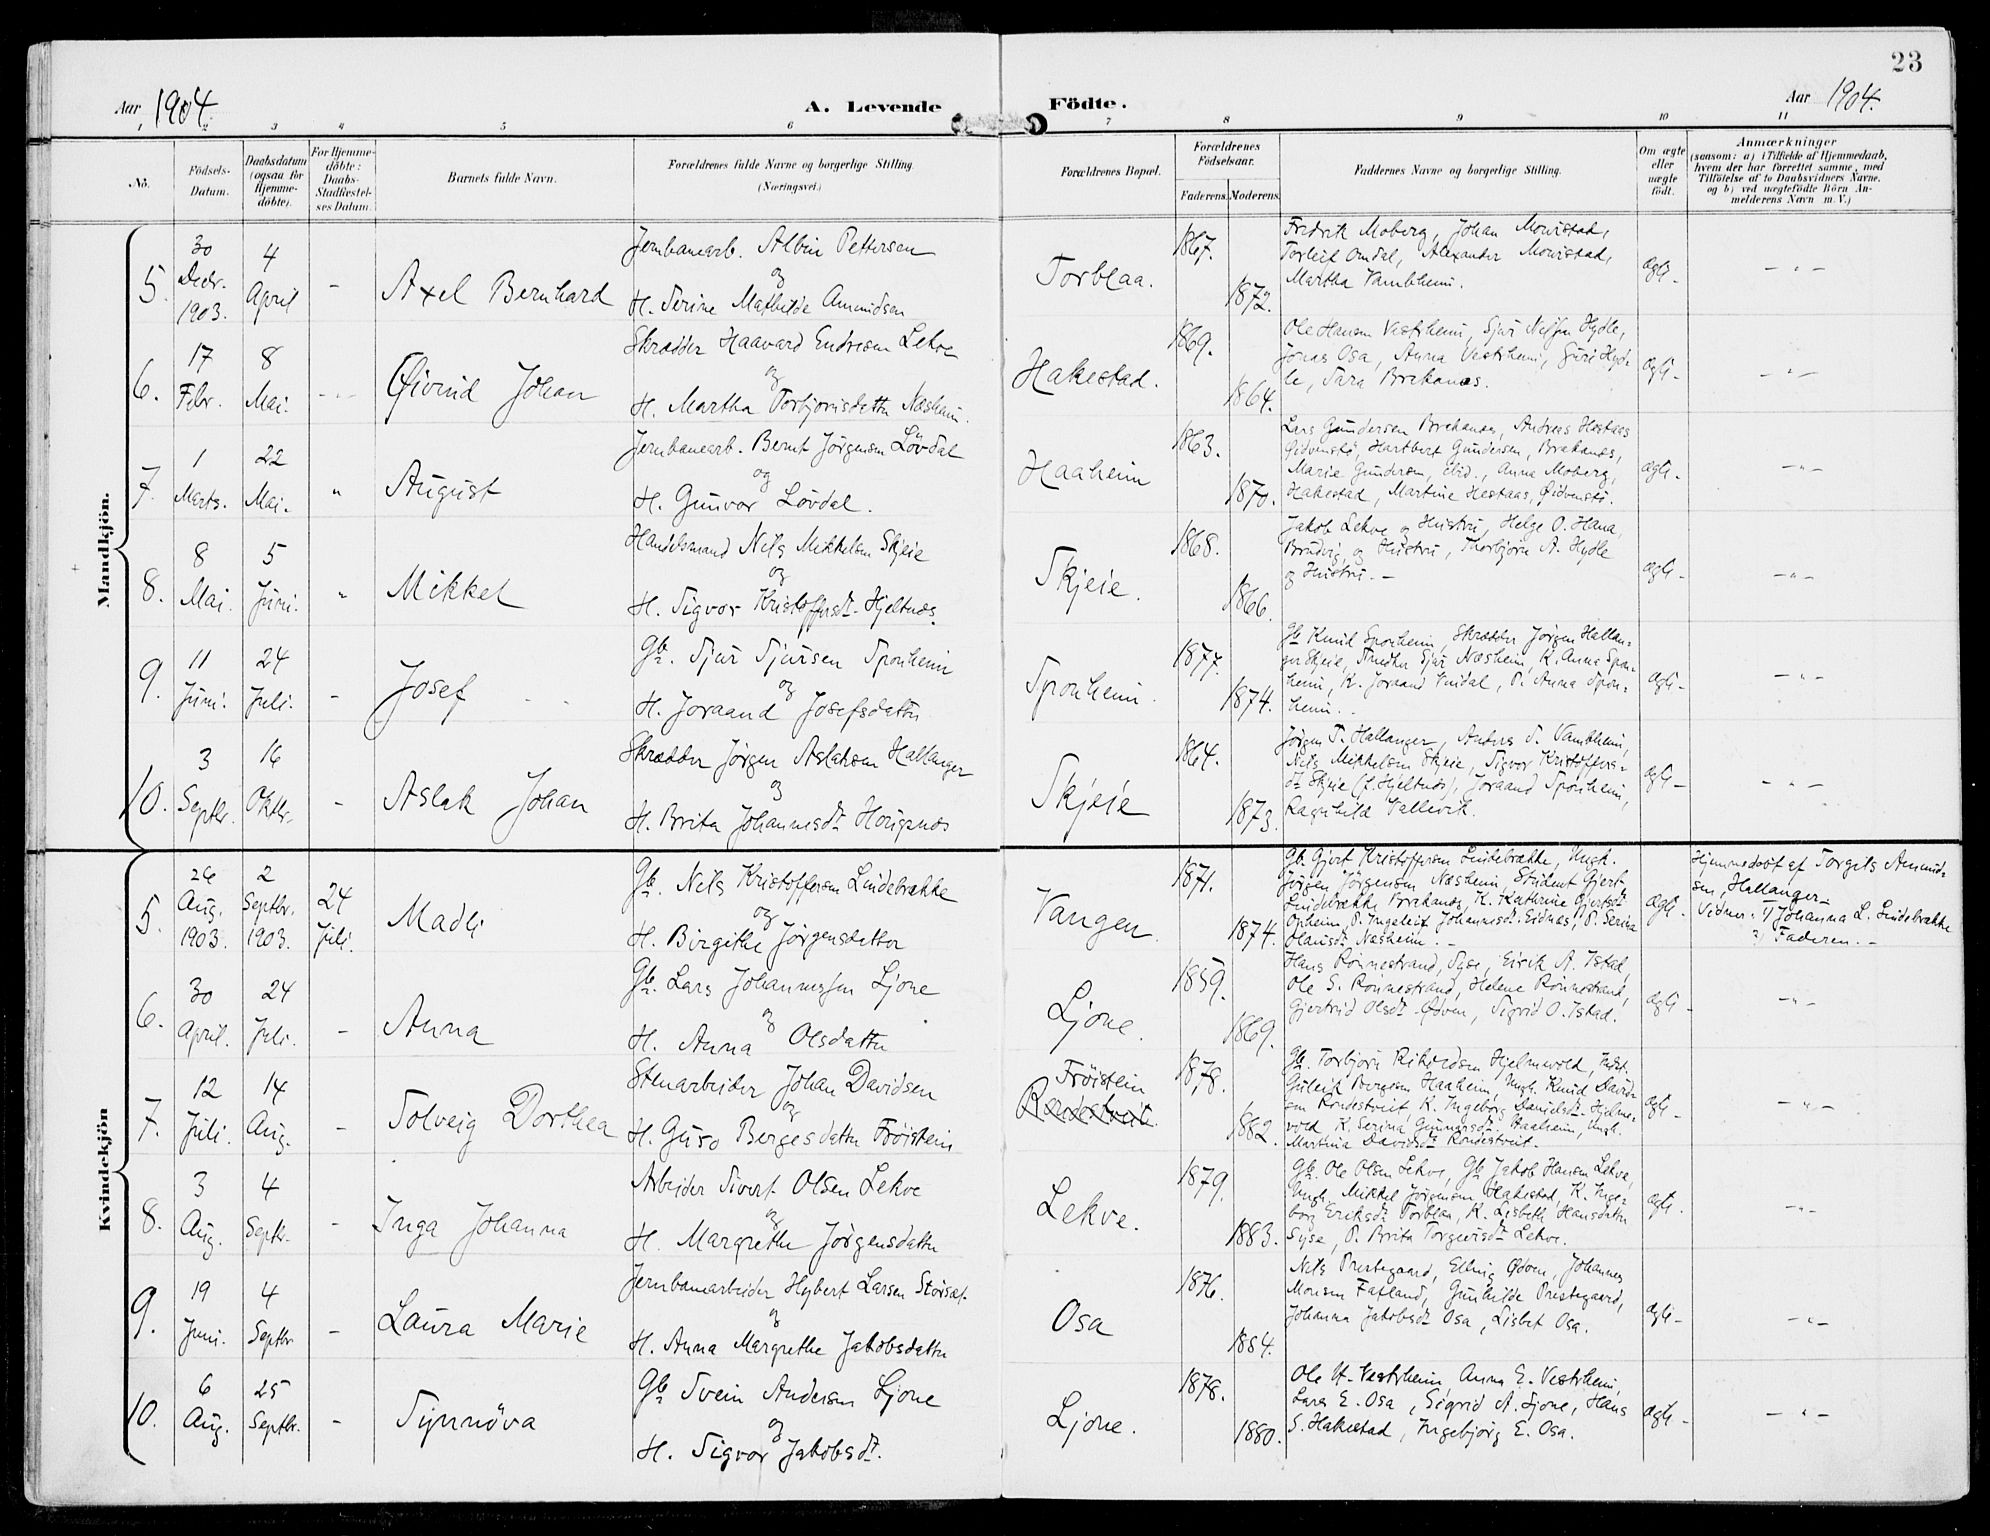 23
Aar 1904.
A. Levende Födte.
Aar 1904.
1 2 3 4 5 6 7 8 9 10 11
No.
Födsels-Datum.
Daabsdatum (ogsaa for Hjemme-döbte).
For Hjemme-döbte: Daabs-Stadfæstel-ses Datum.
Barnets fulde Navn.
Forældrenes fulde Navne og borgerlige Stilling. (Næringsvei.)
Forældrenes Bopæl.
Forældrenes Födselsaar.
Faderens. Moderens.
Faddernes Navne og borgerlige Stilling.
Om ægte eller uægte födt.
Anmærkninger
(saasom: a) i Tilfælde af Hjemmedaab, hvem der har forrettet samme, med Tilföielse af to Daabsvidners Navne, og b) ved uægtefödte Börn An-melderens Navn m. V.)
Mandkjön.
5. 30 Decbr. 1903. 4 April - Axel Bernhard
Jernbanearb. Albin Pettersen
og
H. Serine Mathilde Amundsen
Torblaa. 1867. 1872.
Fredrik Moberg, Johan Monstad,
Torleif Omdal, Alexander Monstad,
Martha Vambheim.
ægte - - " -
6. 17 Febr. 8 Mai. - " - Øivind Johan
Skrædder Haavard Endresen Lekve
og
H. Martha Torbjørnsdatter Næsheim.
Hakestad. 1869. 1864.
Ole Hansen Vestrheim, Sjur Nilsen Hydle,
Jonas Osa, Anna Vestrheim, Guri Hyd-
le, Sara Brekanæs.
ægte - - " -
7. 1 Marts. 22 Mai. " August
Jernbanearb. Bernt Jørgensen Lövdal
og
H. Gunvor Lövdal.
Haaheim 1863. 1870.
Lars Gundersen Brekanæs, Andreas Hestaas
Øidvenstö, Hartbert Gundersen, Brekanæs,
Marie Gundersen, ibid., Anna Moberg,
Hakestad, Martine Hestaas, Øidvenstö.
ægte. - " -
8. 8 Mai. 5 Juni. " Mikkel
Handelsmand Nils Mikkelsen Skjeie
og
H. Sigvor Kristoffersdt. Hjeltnæs.
Skjeie. 1868. 1866.
Jakob Lekve og Hustru, Helge O. Hana,
Bruvig, og Hustru, Thorbjörn A. Hydle
og Hustru. -
ægte - - " -
9. 11 Juni. 24 Juli. - Josef
Gbr. Sjur Sjursen Sponheim
og
H. Joraand Josefsdatter
Sponheim. 1877. 1874.
Gbr Knud Sponheim, Skrædder Jørgen Hallan-
ger Skjeie, Snedker Sjur Næsheim, K. Anna Spon-
heim, K. Joraand Vindal, P. Anna Spon-
heim. -
ægte - - " -
10. 3 Septbr. 16 Oktbr. - Aslak Johan
Skrædder Jørgen Aslaksen Hallanger
og
H. Brita Johannesdt Hougsnæs
Skjeie 1864. 1873.
Jørgen T. Hallanger, Anders S. Vambheim,
Nils Mikkelsen Skjeie, Sigvor Kristoffers-
dt Skjeie (f. Hjeltnæs), Joraand Sponheim,
Ragnhild Vallevik.
ægte - - " -
Kvindekjön
5. 26 Aug. 1903. 2 Septbr. 1903. 24 Juli. Madli
Gbr. Nils Kristoffersen Lindebrække
og
H. Birgithe Jørgensdatter
Vangen. 1871. 1874.
Gbr Gjert Kristoffersen Lindebrække, Ungk.
Jørgen Jørgensen Næsheim, Student Gjert
Lindebrække Brekanæs, K. Kathrine Gjertsdt
Opheim, P. Ingeleif Johannesdt. Eidnæs, P. Serina
Olausdt Næsheim. -
ægte.
Hjemmedöbt af Torgils Amund-
sen, Hallanger.
Vidner: 1) Johanna L. Lindebrække
2) Faderen. -
6. 30 April. 24 Juli. - Anna
Gbr. Lars Johannessen Ljone
og
H. Anna Olsdatter
Ljone. 1859. 1869.
Hans Rönnestrand, Syse, Eirik A. Istad,
Ole S. Rönnestrand, Helene Rönnestrand,
Gjertrid Olsdt. Ødven, Sigrid O. Istad.
ægte - - " -
7. 12 Juli. 14 Aug. - Solveig Dorthea
Stenarbeider Johan Davidsen
og
H. Guro Bergesdatter Fröistein
Fröistein
Rondestveit. 1878. 1882.
Gbr. Torbjörn Rikoldsen Hjelmevold, Inst.
Guleik Bergesen Haaheim, Ungk. Knud David-
sen Rondestveit, K. Ingeborg Danielsdt. Hjelme-
vold, K. Serina Gunnarsdt. Haaheim, Ungk.
Martina Davidsdt Rondestveit.
ægte - - " -
8. 3 Aug. 4 Septbr. - Inga Johanna
Arbeider Sivert Olsen Lekve
og
H. Margrethe Jørgensdatter
Lekve. 1879. 1883.
Gbr. Ole Olsen Lekve, Gbr Jakob Hansen Lekve,
Ungk. Mikkel Jørgensen Hakestad, K. Inge-
borg Eriksdt Torblaa, K. Lisbeth Hansdatter
Syse, P. Brita Torgeirsdt Lekve.
ægte. - " -
9. 19 Juni. 4 Septbr - Laura Marie
Jernbanearbeider Hybert Larsen Storsæt.
og
H. Anna Margrethe Jakobsdatter
Osa 1876. 1884.
Nils Prestegaard, Elling Ødven, Johannes
Monsen Fatland, Gunhilde Prestegaard,
Johanna Jakobsdt Osa, Lisbet Osa.
ægte - - " -
10. 6 Aug. 25 Septbr. - Synnöva
Gbr Svein Andersen Ljone
og
H. Sigvor Jakobsdt.
Ljone. 1878. 1880.
Ole H. Vestrheim, Anna E. Vestrheim,
Lars E. Osa, Sigrid A. Ljone, Hans
S. Hakestad, Ingebjørg E. Osa.
ægte - - " -